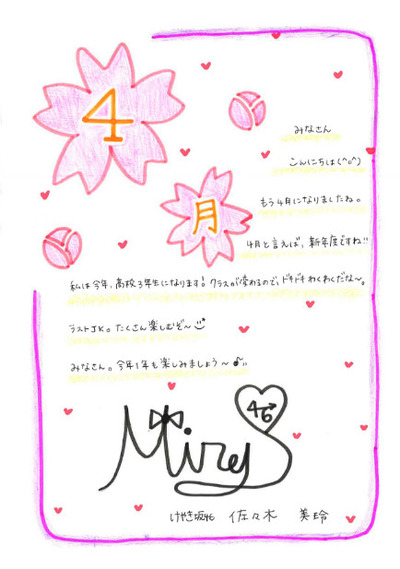 4
月
みなさん
こんにちは(^o^)
もう4月になりましたね。
4月と言えば、新年度ですね!!
私は今年、高校3年生になります! クラスが変わるので、ドキドキわくわくだな〜。
ラストJK。たくさん楽しむぞ〜
みなさん。今年1年も楽しみましょう〜♪
46
Mirei
けやき坂46 佐々木 美玲